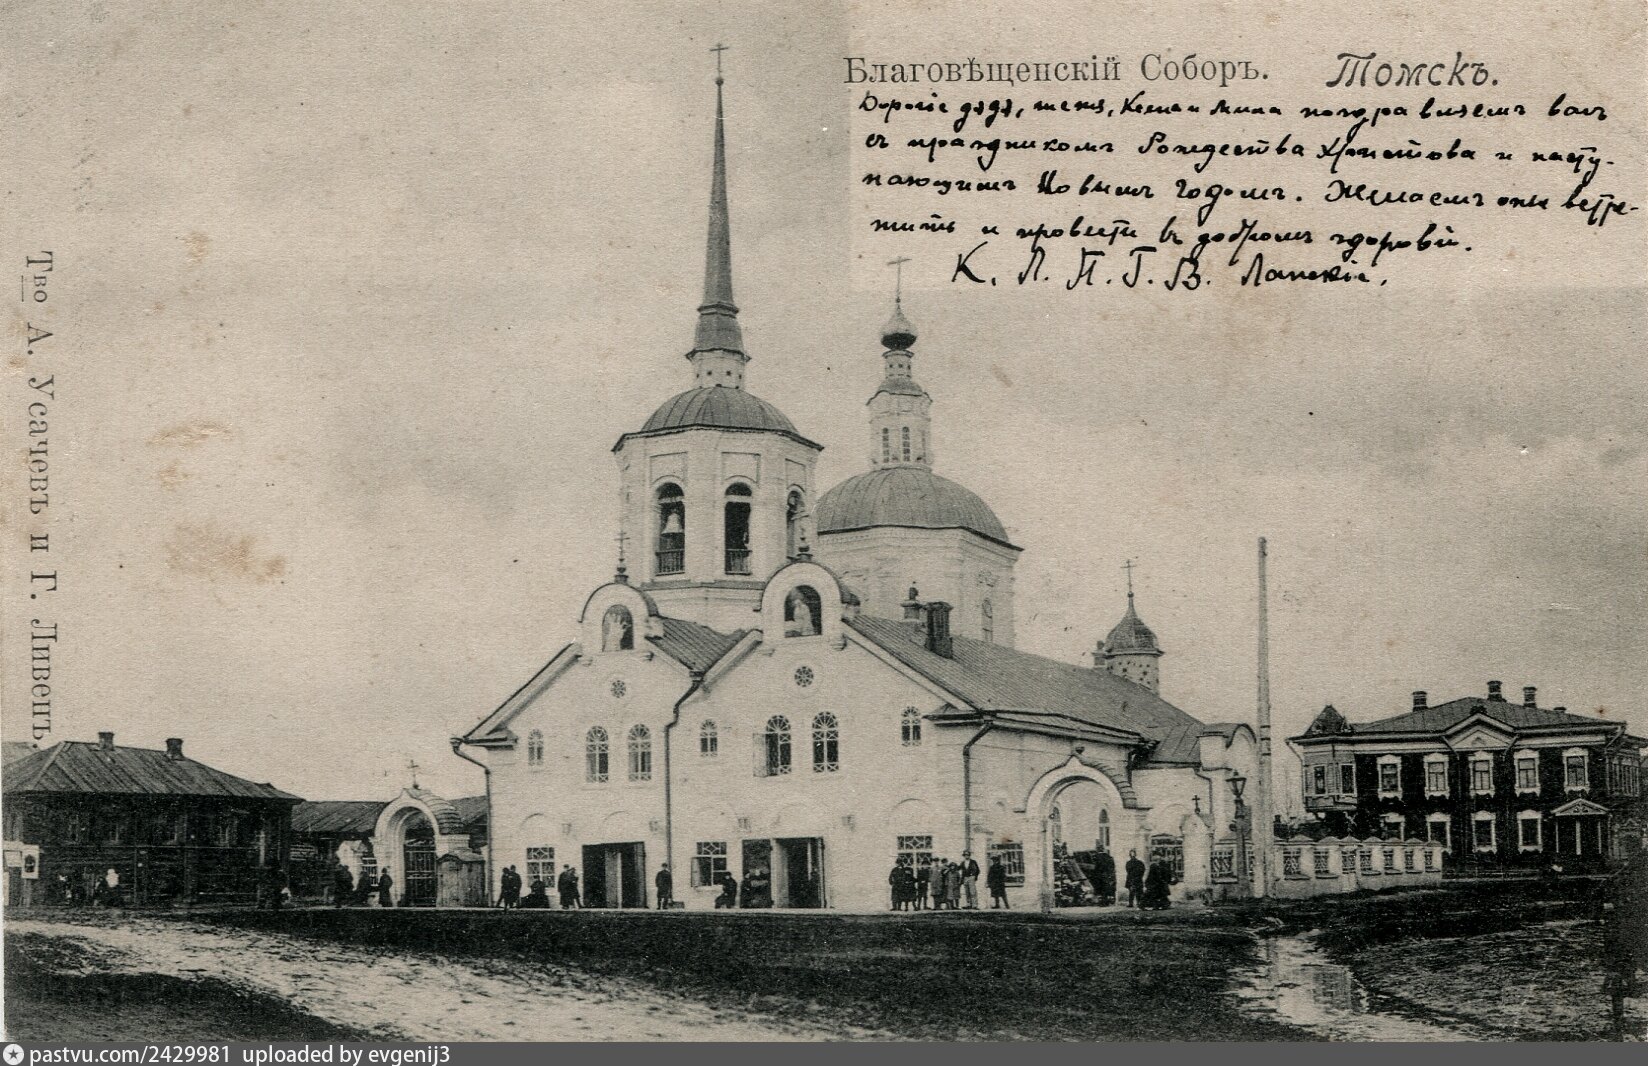 Благовѣщенскій Соборъ. Томскъ.
Дорогіе дядя, тетя, Кеша и Миша поздравляемъ васъ
съ праздникомъ Рождества Христова и насту-
пающимъ Новымъ Годомъ. Желаемъ оные встре-
тить и провести въ добромъ здоровіи.
К. Л. П. Г. В. Ланскіе.
Тво А. Усачевъ и Г. Ливенъ.
pastvu.com/2429981 uploaded by evgenij3